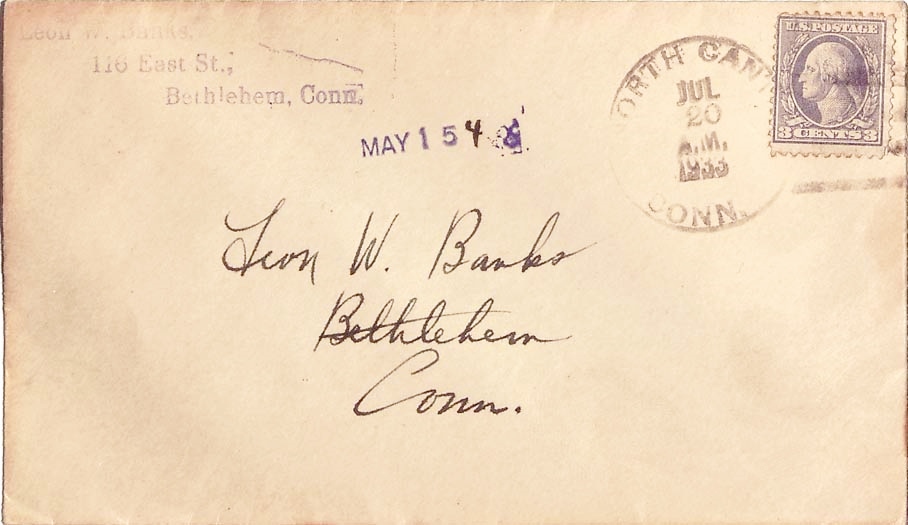 Leon W. Banks,
116 East St.,
Bethlehem, Conn.
MAY 15 4
NORTH CAN
JUL
20
A.M.
1933
CONN.
U.S. POSTAGE
3 CENTS 3
Leon W. Banks
Bethlehem
Conn.